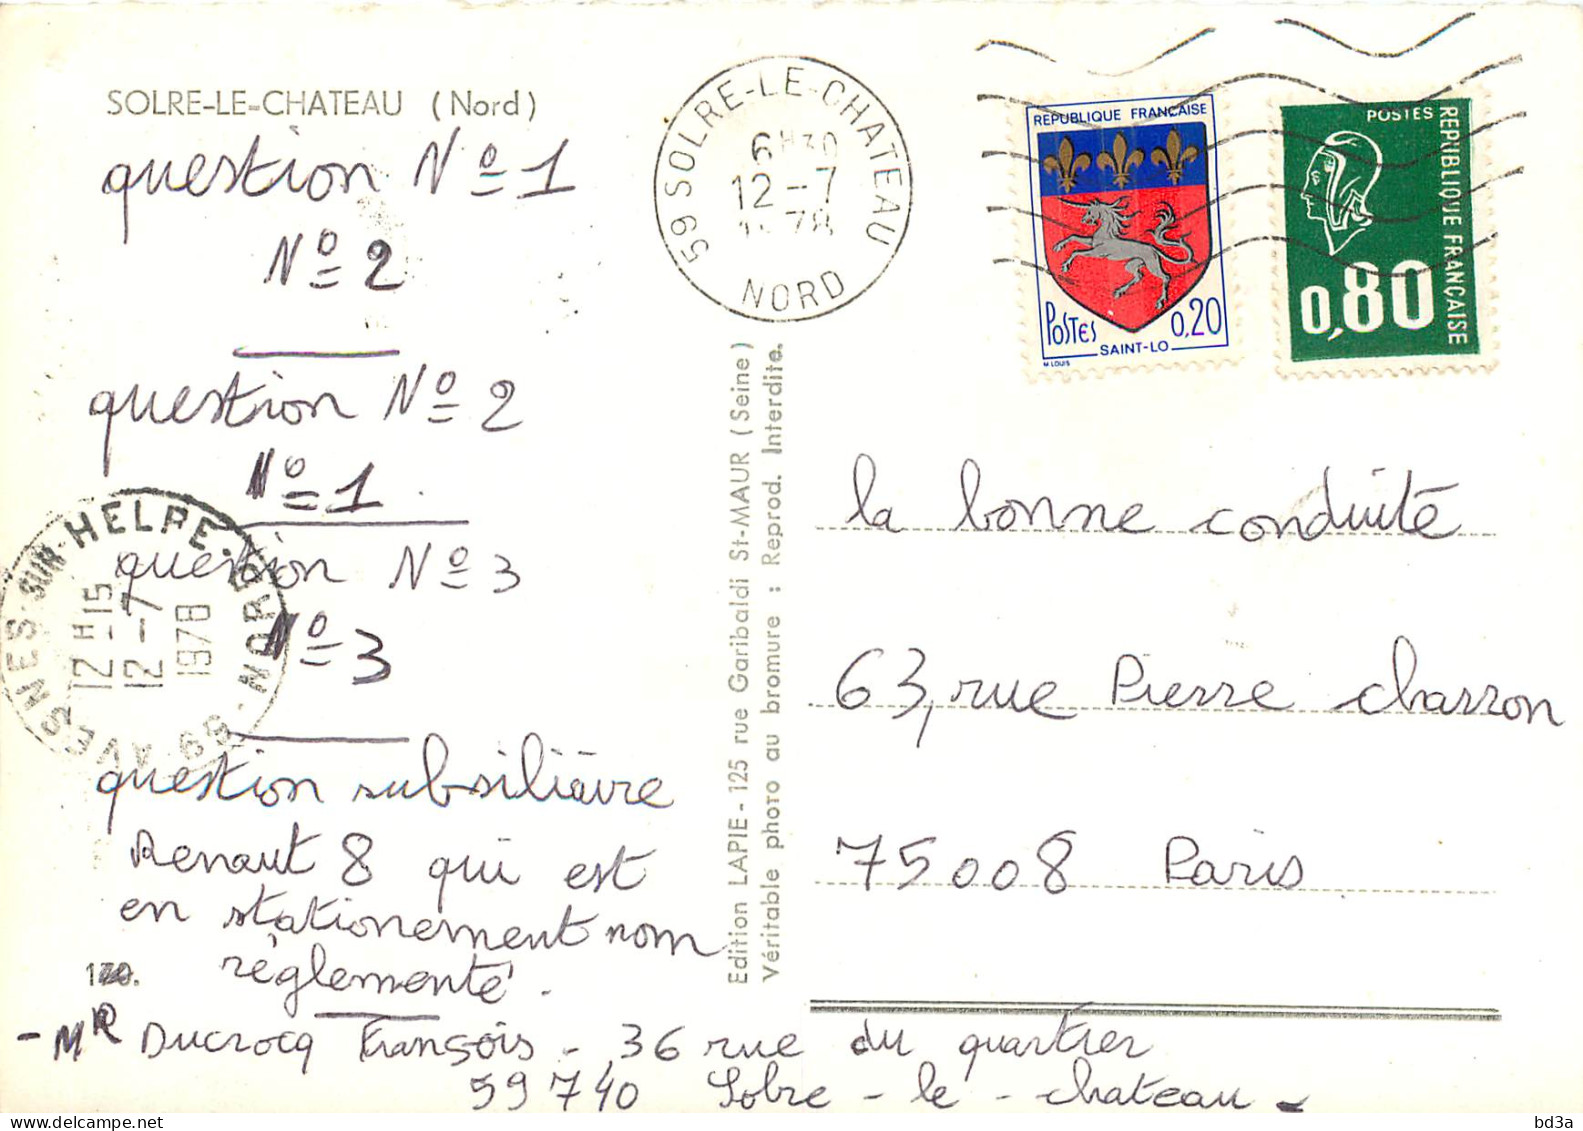 SOLRE-LE-CHATEAU (Nord)
question Nº 1
Nº 2
question Nº 2
Nº 1
question Nº 3
Nº 3
question subsilière
Renaut 8 qui est
en stationement nom
règlementé.
170.
- MR Ducrocq François - 36 rue du quartier
59740 Solre - le - chateau -
59 SOLRE-LE-CHATEAU
6H30
12-7
1978
NORD
59 AVESNES SUR HELPE. NORD
12 H 15
12-7
1978
REPUBLIQUE FRANÇAISE
POSTES 0,20
SAINT-LO
M.LOUIS
POSTES
REPUBLIQUE FRANÇAISE
0,80
Edition LAPIE - 125 rue Garibaldi St-MAUR (Seine)
Véritable photo au bromure : Reprod. Interdite.
la bonne conduité
63, rue Pierre charron
75008 Paris
bd3a